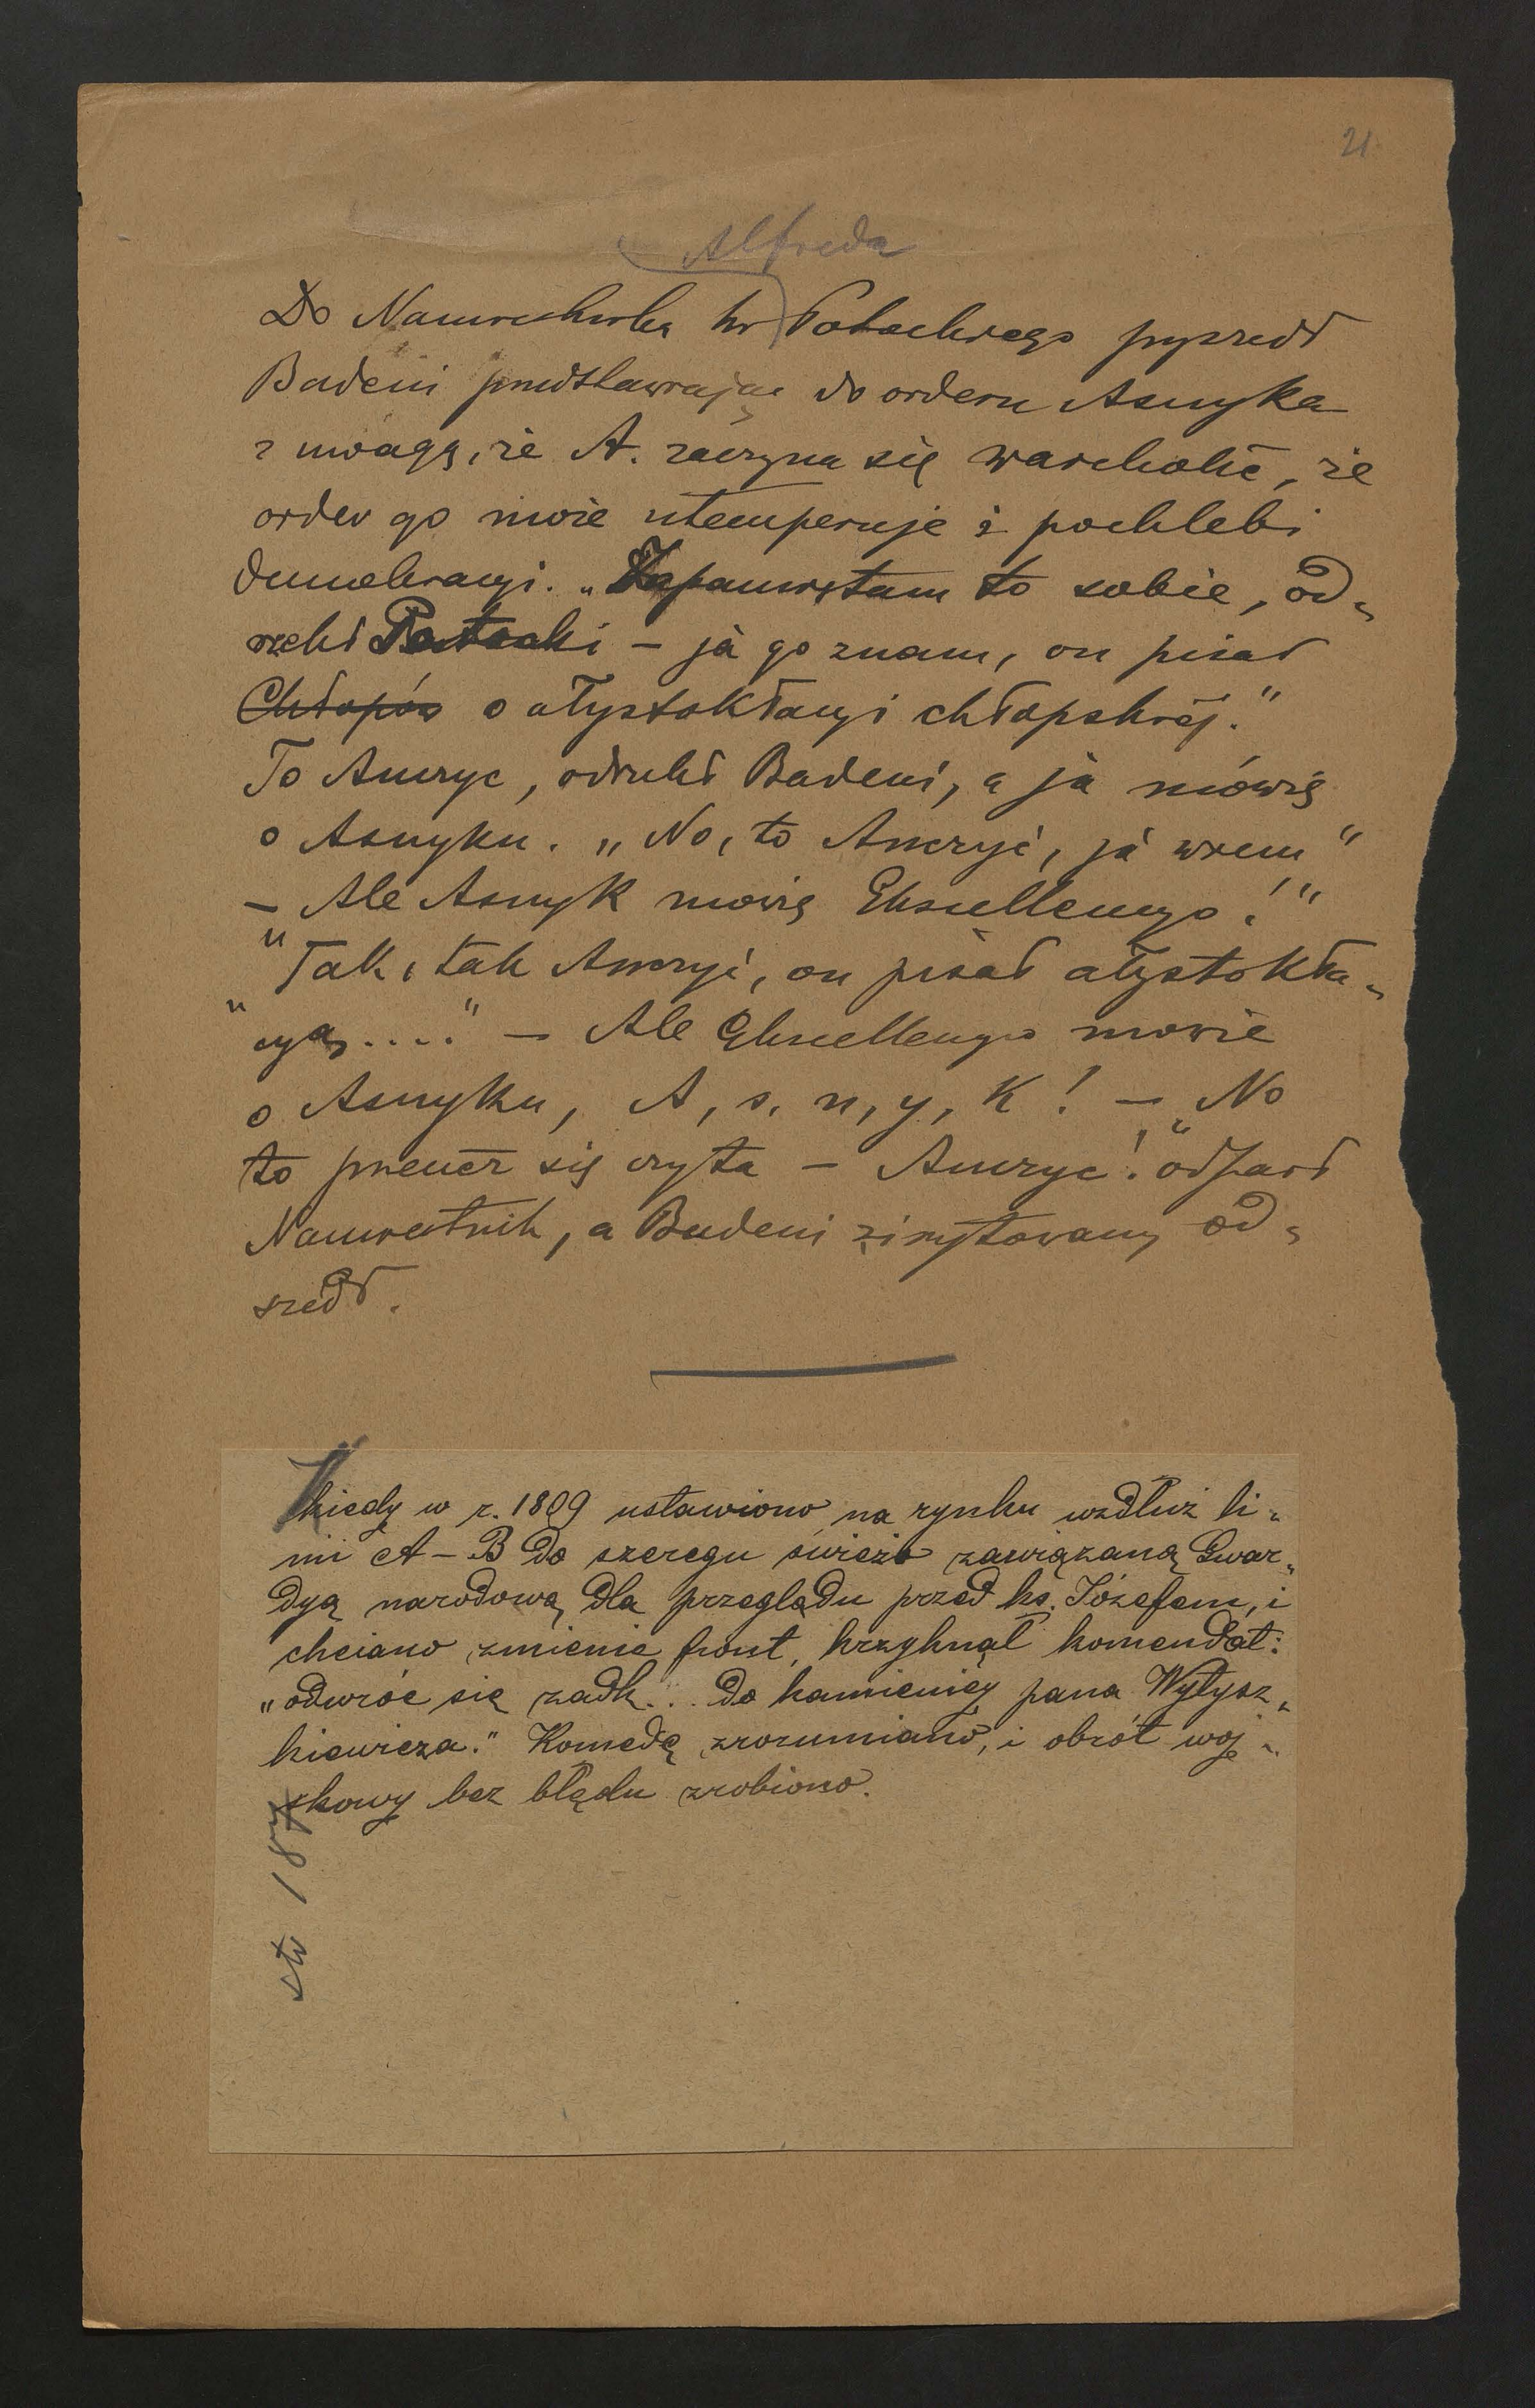 21
Alfreda
Do Namiestnika hr Potockiego przyszedł
Badeni przedstawiając do orderu Asnyka
z uwagą, że A. zaczyna się warcholić, że
order go może utemperuje i pochlebi
demokracyi. „Zapamiętam to sobie, od„
rzekł Potocki – ja go znam, on pisał
Chłopów o ałystokłacyi chłopskiej."
To Anczyc, odrzekł Badeni, a ja mówię
o Asnyku. „No, to Anczyc, ja wiem"
– Ale Asnyk mówię Ekscellencyo!"
"Tak, tak Anczyc, on pisał ałystokła„
„cyą...." – Ale Ekscellencyo mowie
o Asnyku, A, s, n, y, k! – „No
to przecież się czyta – Anczyc!" odparł
Namiestnik, a Badeni zirytowany od„
szedł.
Kiedy w r. 1809 ustawiono na rynku wzdłuż li„
nii A–B do szeregu świeżo zawiązaną Gwar„
dyą narodową dla przeglądu przed ks. Józefem, i
chciano zmienic front, krzyknął komendat:
„odwróc się zadk... do kamienicy pana Wytysz„
kiewicza." Komedę zrozumiano, i obrót woj„
skowy bez błędu zrobiono.
str 187